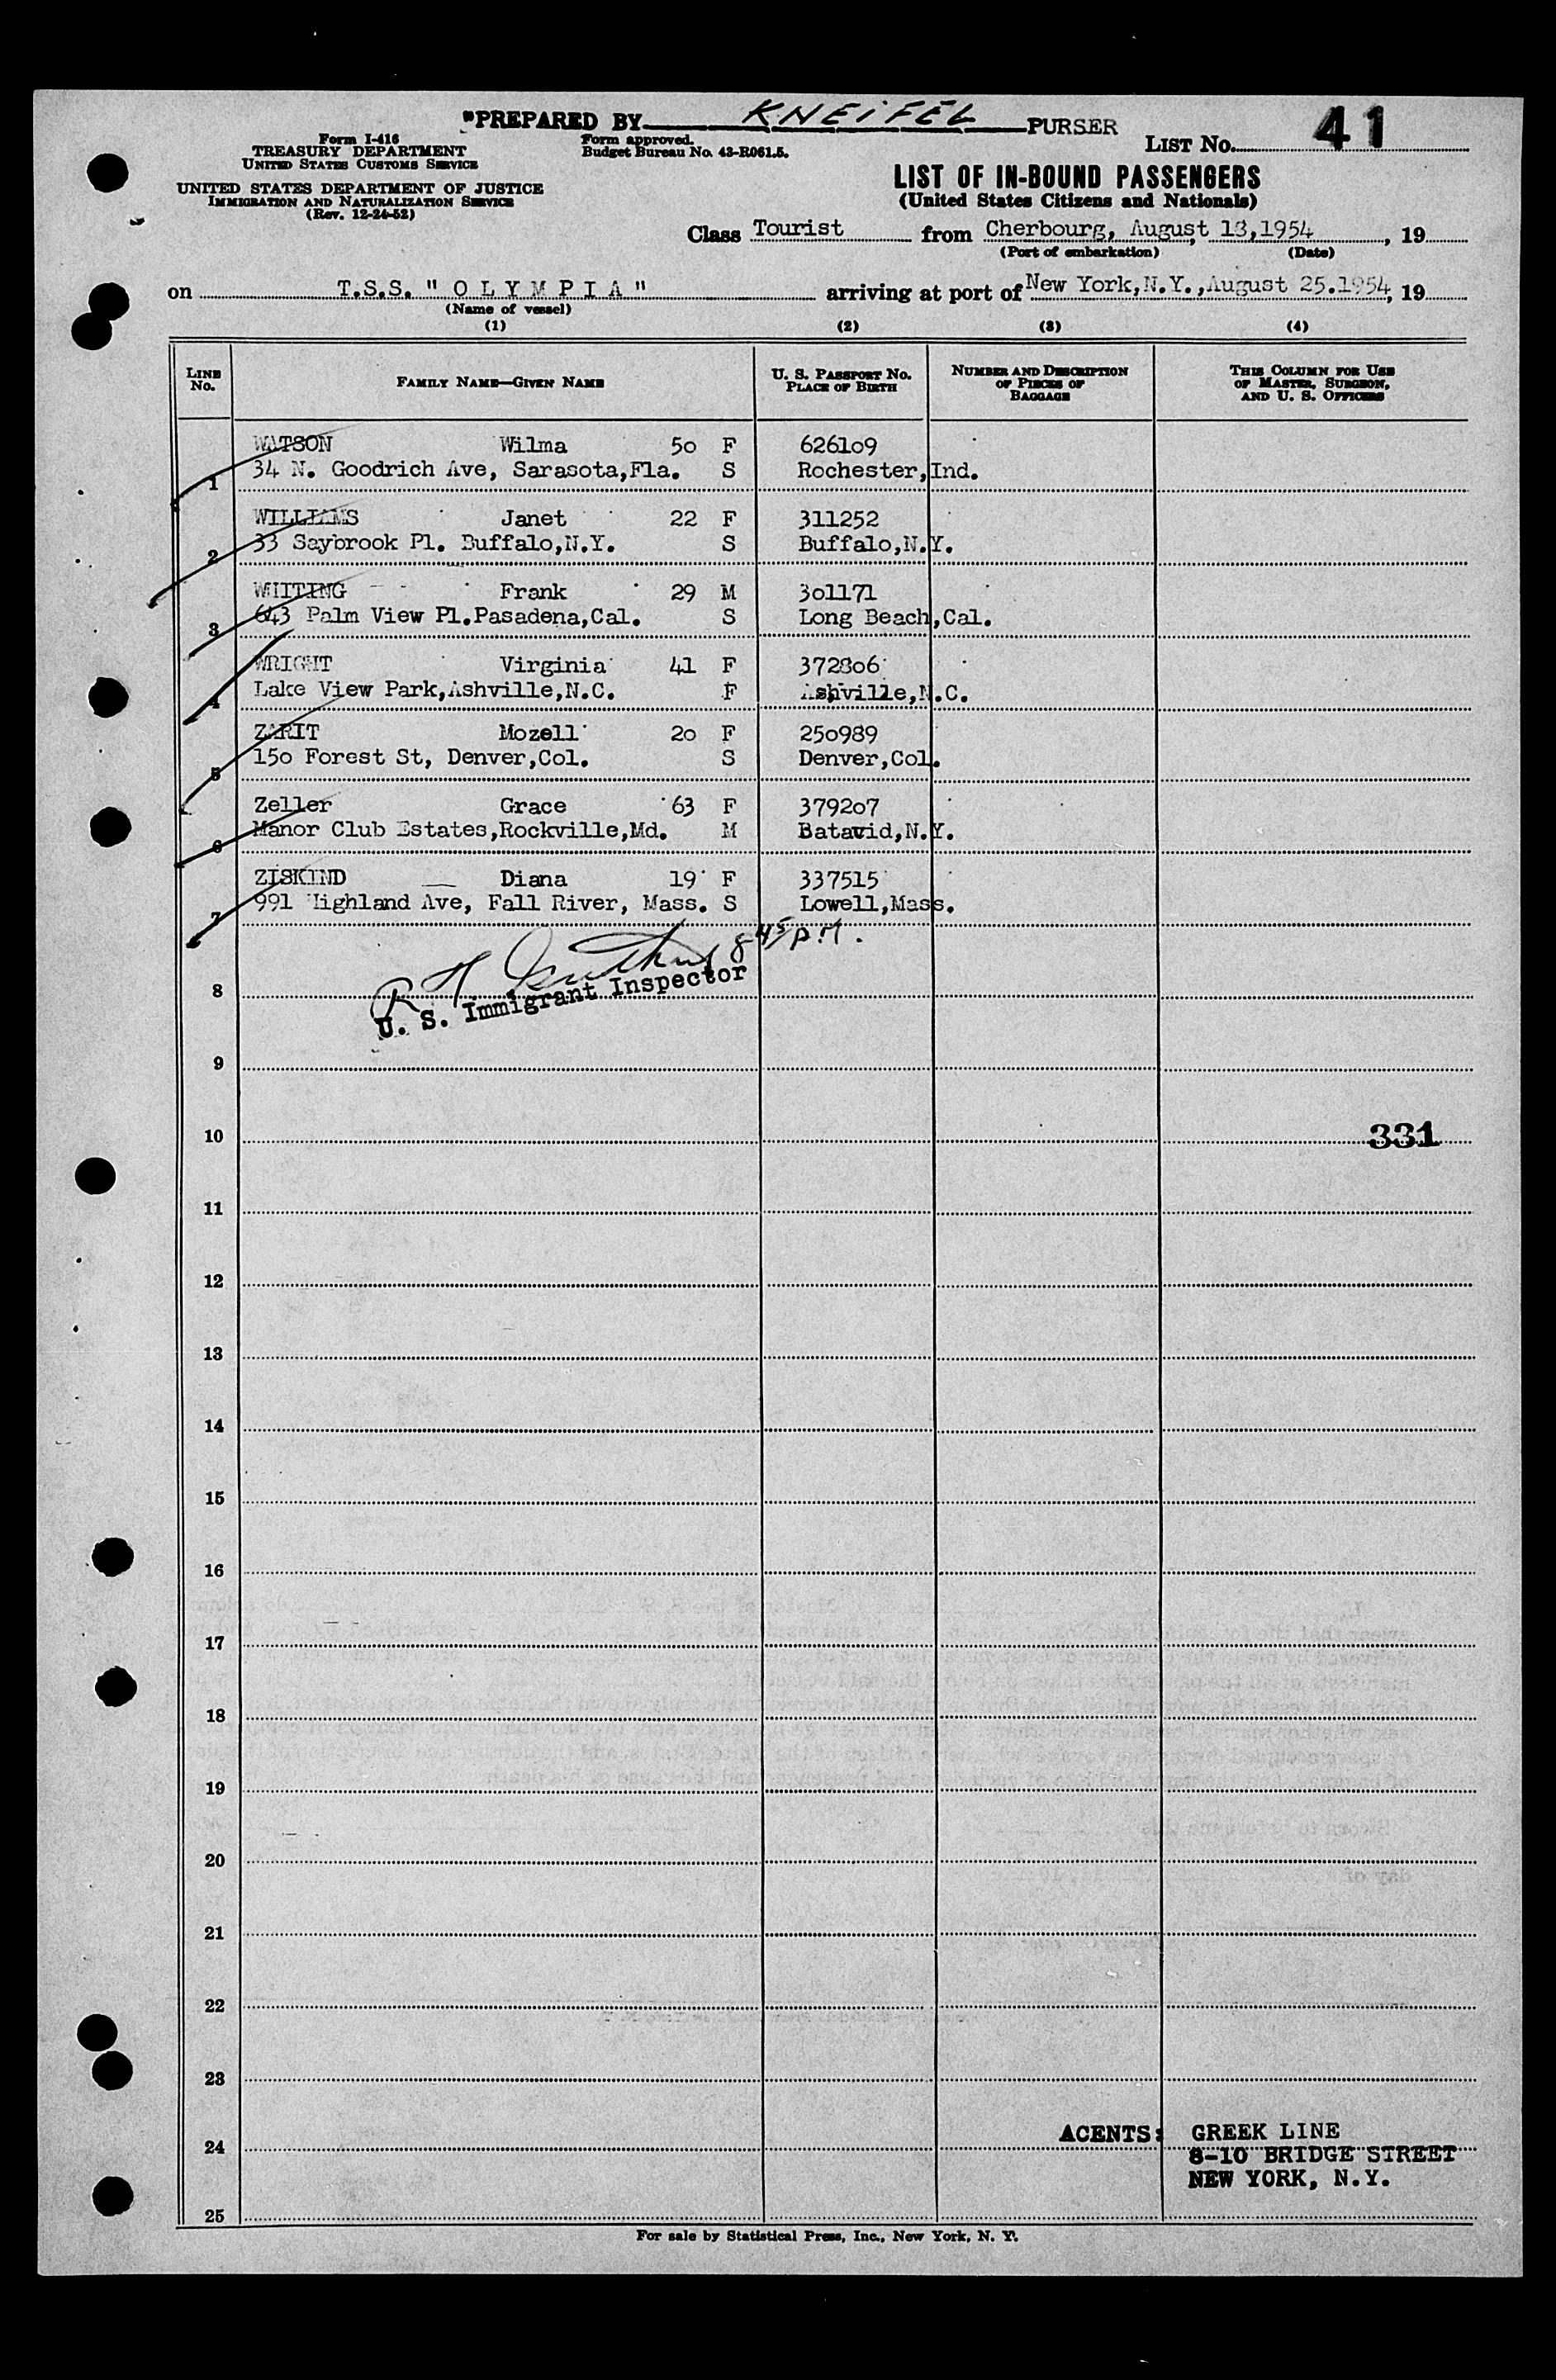 "PREPARED BY KNEIFEL PURSER
Form I-416
TREASURY DEPARTMENT
UNITED STATES CUSTOMS SERVICE
Form approved.
Budget Bureau No. 43-R061.5.
LIST No. 41
UNITED STATES DEPARTMENT OF JUSTICE
IMMIGRATION AND NATURALIZATION SERVICE
(Rev. 12-24-52)
LIST OF IN-BOUND PASSENGERS
(United States Citizens and Nationals)
Class Tourist from Cherbourg, August 13,1954, 19
(Port of embarkation) (Date)
on T.S.S. " O L Y M P I A " arriving at port of New York,N.Y.,August 25.1954, 19
(Name of vessel)
(1) (2) (3) (4)
LINE No. FAMILY NAME—GIVEN NAME U. S. PASSPORT No. PLACE OF BIRTH NUMBER AND DESCRIPTION OF PIECES OF BAGGAGE THIS COLUMN FOR USE OF MASTER, SURGEON, AND U. S. OFFICERS
WATSON Wilma 5o F 6261o9
1 34 N. Goodrich Ave, Sarasota,Fla. S Rochester,Ind.
WILLIAMS Janet 22 F 311252
2 33 Saybrook Pl. Buffalo,N.Y. S Buffalo,N.Y.
WHITING Frank 29 M 3o1171
3 643 Palm View Pl.Pasadena,Cal. S Long Beach,Cal.
WRIGHT Virginia 41 F 3728o6
4 Lake View Park,Ashville,N.C. F Ashville,N.C.
ZARIT Mozell 2o F 25o989
5 15o Forest St, Denver,Col. S Denver,Col.
Zeller Grace 63 F 3792o7
6 Manor Club Estates,Rockville,Md. M Batavid,N.Y.
ZISKIND Diana 19 F 337515
7 991 Highland Ave, Fall River, Mass. S Lowell,Mass.
R H 8 45 P.M.
8 U. S. Immigrant Inspector
9
10 331
11
12
13
14
15
16
17
18
19
20
21
22
23
24 ACENTS: GREEK LINE
8-10 BRIDGE STREET
NEW YORK, N.Y.
25
For sale by Statistical Press, Inc., New York, N. Y.